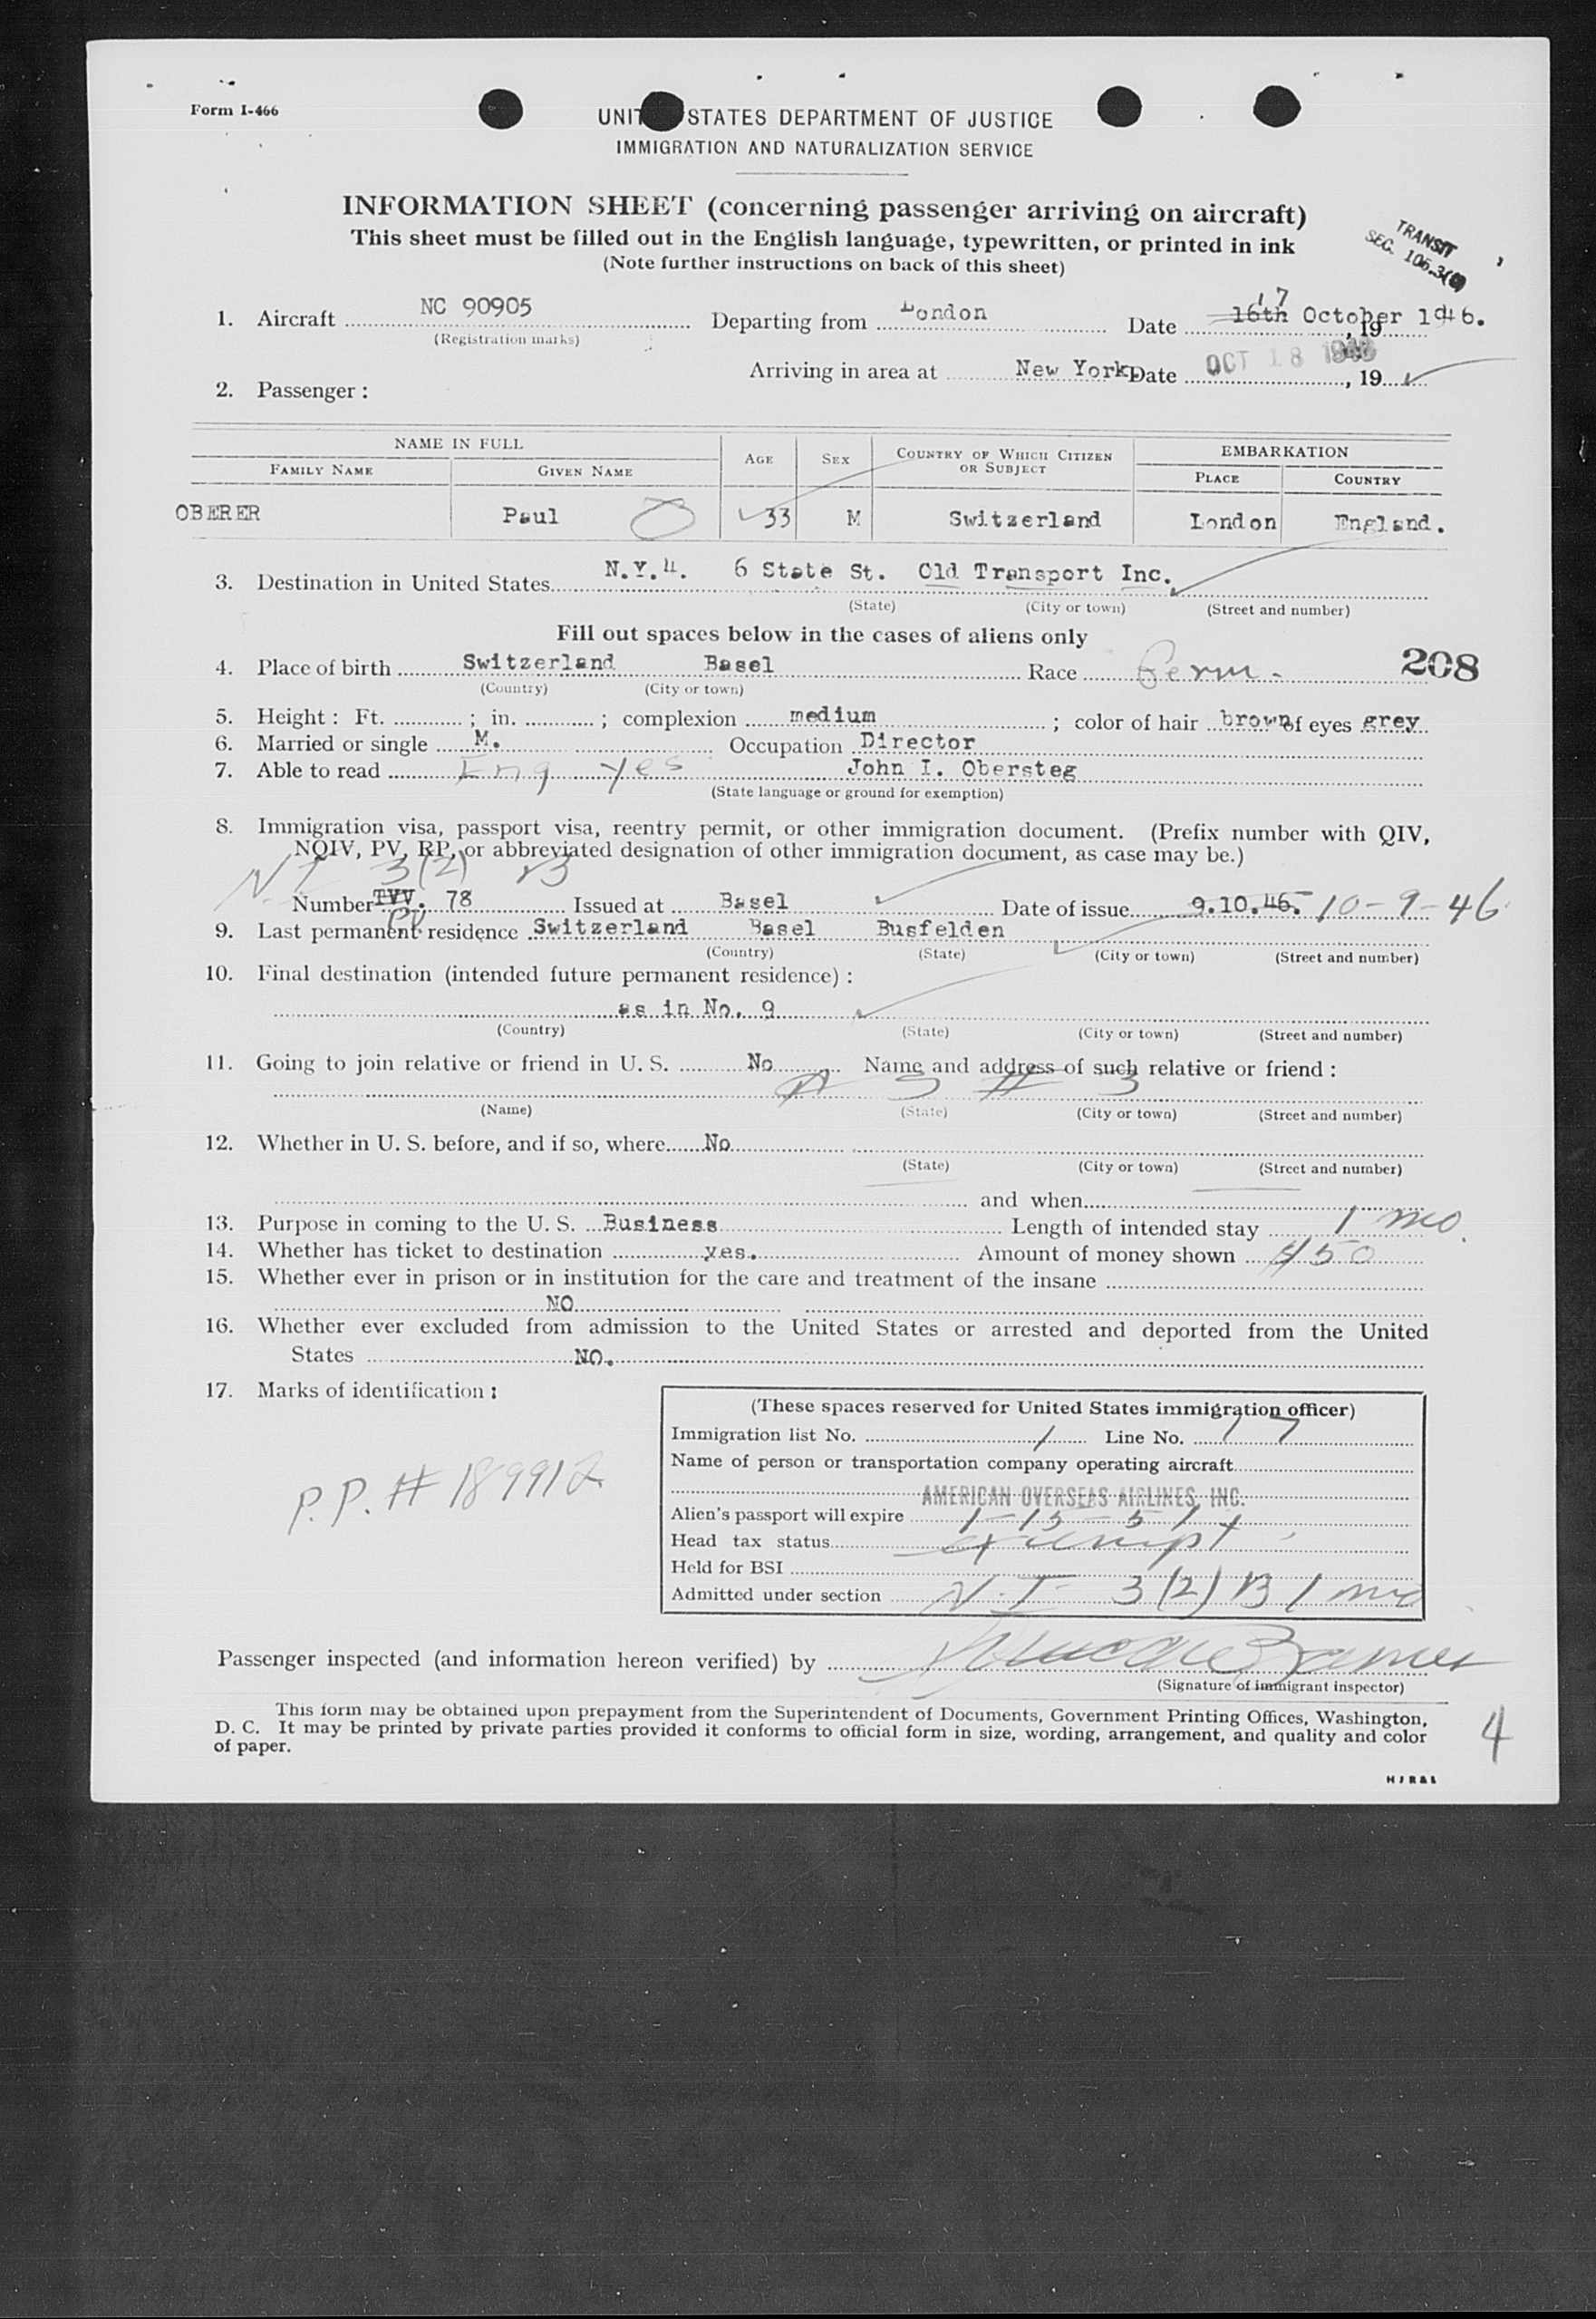 Form I-466
UNITED STATES DEPARTMENT OF JUSTICE
IMMIGRATION AND NATURALIZATION SERVICE
INFORMATION SHEET (concerning passenger arriving on aircraft)
This sheet must be filled out in the English language, typewritten, or printed in ink
(Note further instructions on back of this sheet)
TRANSIT
SEC. 105.3(
17
1. Aircraft NC 90905 Departing from London Date 16th October 1946. , 19
(Registration marks)
Arriving in area at New York Date OCT 18 1946 , 19
2. Passenger :
NAME IN FULL AGE SEX COUNTRY OF WHICH CITIZEN OR SUBJECT EMBARKATION
FAMILY NAME GIVEN NAME PLACE COUNTRY
OBERER Paul 33 M Switzerland London England.
3. Destination in United States N.Y.4. 6 State St. Old Transport Inc.
(State) (City or town) (Street and number)
Fill out spaces below in the cases of aliens only
4. Place of birth Switzerland Basel Race Germ. 208
(Country) (City or town)
5. Height : Ft. ; in. ; complexion medium ; color of hair brown of eyes grey
6. Married or single M. Occupation Director
7. Able to read Eng yes John I. Obersteg
(State language or ground for exemption)
8. Immigration visa, passport visa, reentry permit, or other immigration document. (Prefix number with QIV,
NQIV, PV, RP, or abbreviated designation of other immigration document, as case may be.)
NI 3(2) B
Number TVV. 78 Issued at Basel Date of issue 9.10.46. 10-9-46
PV
9. Last permanent residence Switzerland Basel Busfelden
(Country) (State) (City or town) (Street and number)
10. Final destination (intended future permanent residence) :
as in No. 9
(Country) (State) (City or town) (Street and number)
11. Going to join relative or friend in U. S. No Name and address of such relative or friend :
# 3
(Name) (State) (City or town) (Street and number)
12. Whether in U. S. before, and if so, where No
(State) (City or town) (Street and number)
and when
13. Purpose in coming to the U. S. Business Length of intended stay 1 mo.
14. Whether has ticket to destination yes. Amount of money shown 450
15. Whether ever in prison or in institution for the care and treatment of the insane
NO
16. Whether ever excluded from admission to the United States or arrested and deported from the United
States NO.
17. Marks of identification :
P.P. # 189912
(These spaces reserved for United States immigration officer)
Immigration list No. 1 Line No. 17
Name of person or transportation company operating aircraft
AMERICAN OVERSEAS AIRLINES, INC.
Alien's passport will expire 1-15-51
Head tax status exempt
Held for BSI
Admitted under section N.I. 3(2) B 1 mo
Passenger inspected (and information hereon verified) by
(Signature of immigrant inspector)
This form may be obtained upon prepayment from the Superintendent of Documents, Government Printing Offices, Washington,
D. C. It may be printed by private parties provided it conforms to official form in size, wording, arrangement, and quality and color
of paper.
4
H J R & L